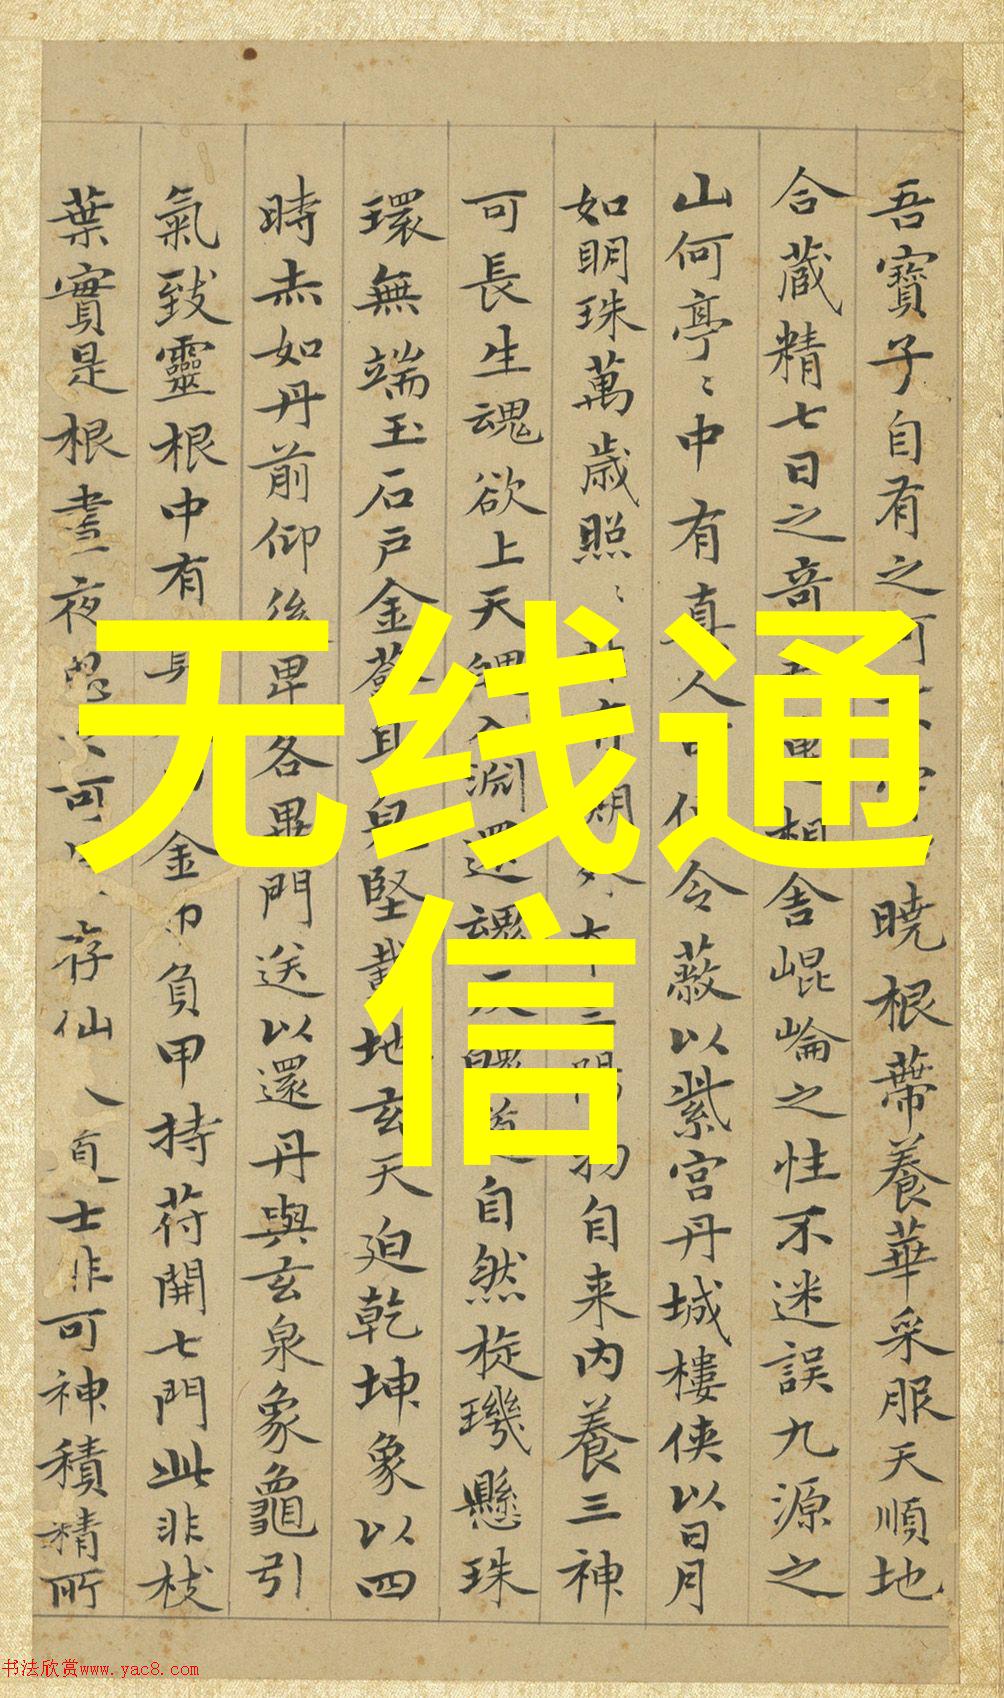 吾寶子自有之何不守曉根蒂養華采服天順地
合藏精七日之奇相舍崐崘之性不迷誤九源之
山何亭〻中有真人令蔽以紫宮丹城樓俠以日月
如明珠萬歲照〻自来内養三神
可長生魂欲上天魄入淵還魂自然琁璣懸珠
環無端玉石戶金籥身兒堅載地玄天迫乾坤象以四
時赤如丹前仰後卑各異門送以還丹與玄泉象龜引
氣致靈根中有金巾負甲持荷開七門此非枝
葉實是根晝夜思之可存仙人道士非可神積精所
无线通
信
书法欣赏www.yac8.com